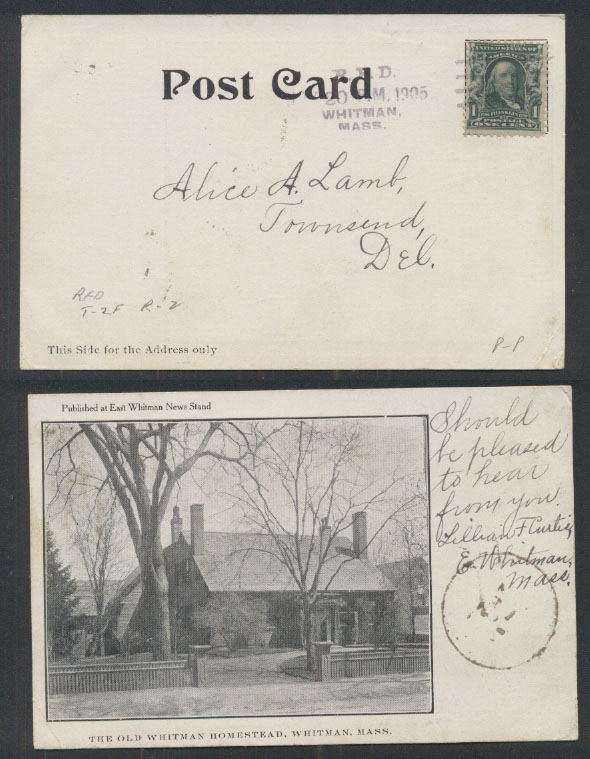 Post Card
R.F.D.
20 M, 1905
WHITMAN,
MASS.
UNITED STATES OF
AMERICA
1 1
FRANKLIN
POSTAGE
ONE CENT
Alice A. Lamb,
Townsend,
Del.
RFD
T-2F R-2
This Side for the Address only
P-P
Published at East Whitman News Stand
Should
be pleased
to hear
from you.
Lillian F Curtis,
E. Whitman,
Mass.
THE OLD WHITMAN HOMESTEAD, WHITMAN, MASS.